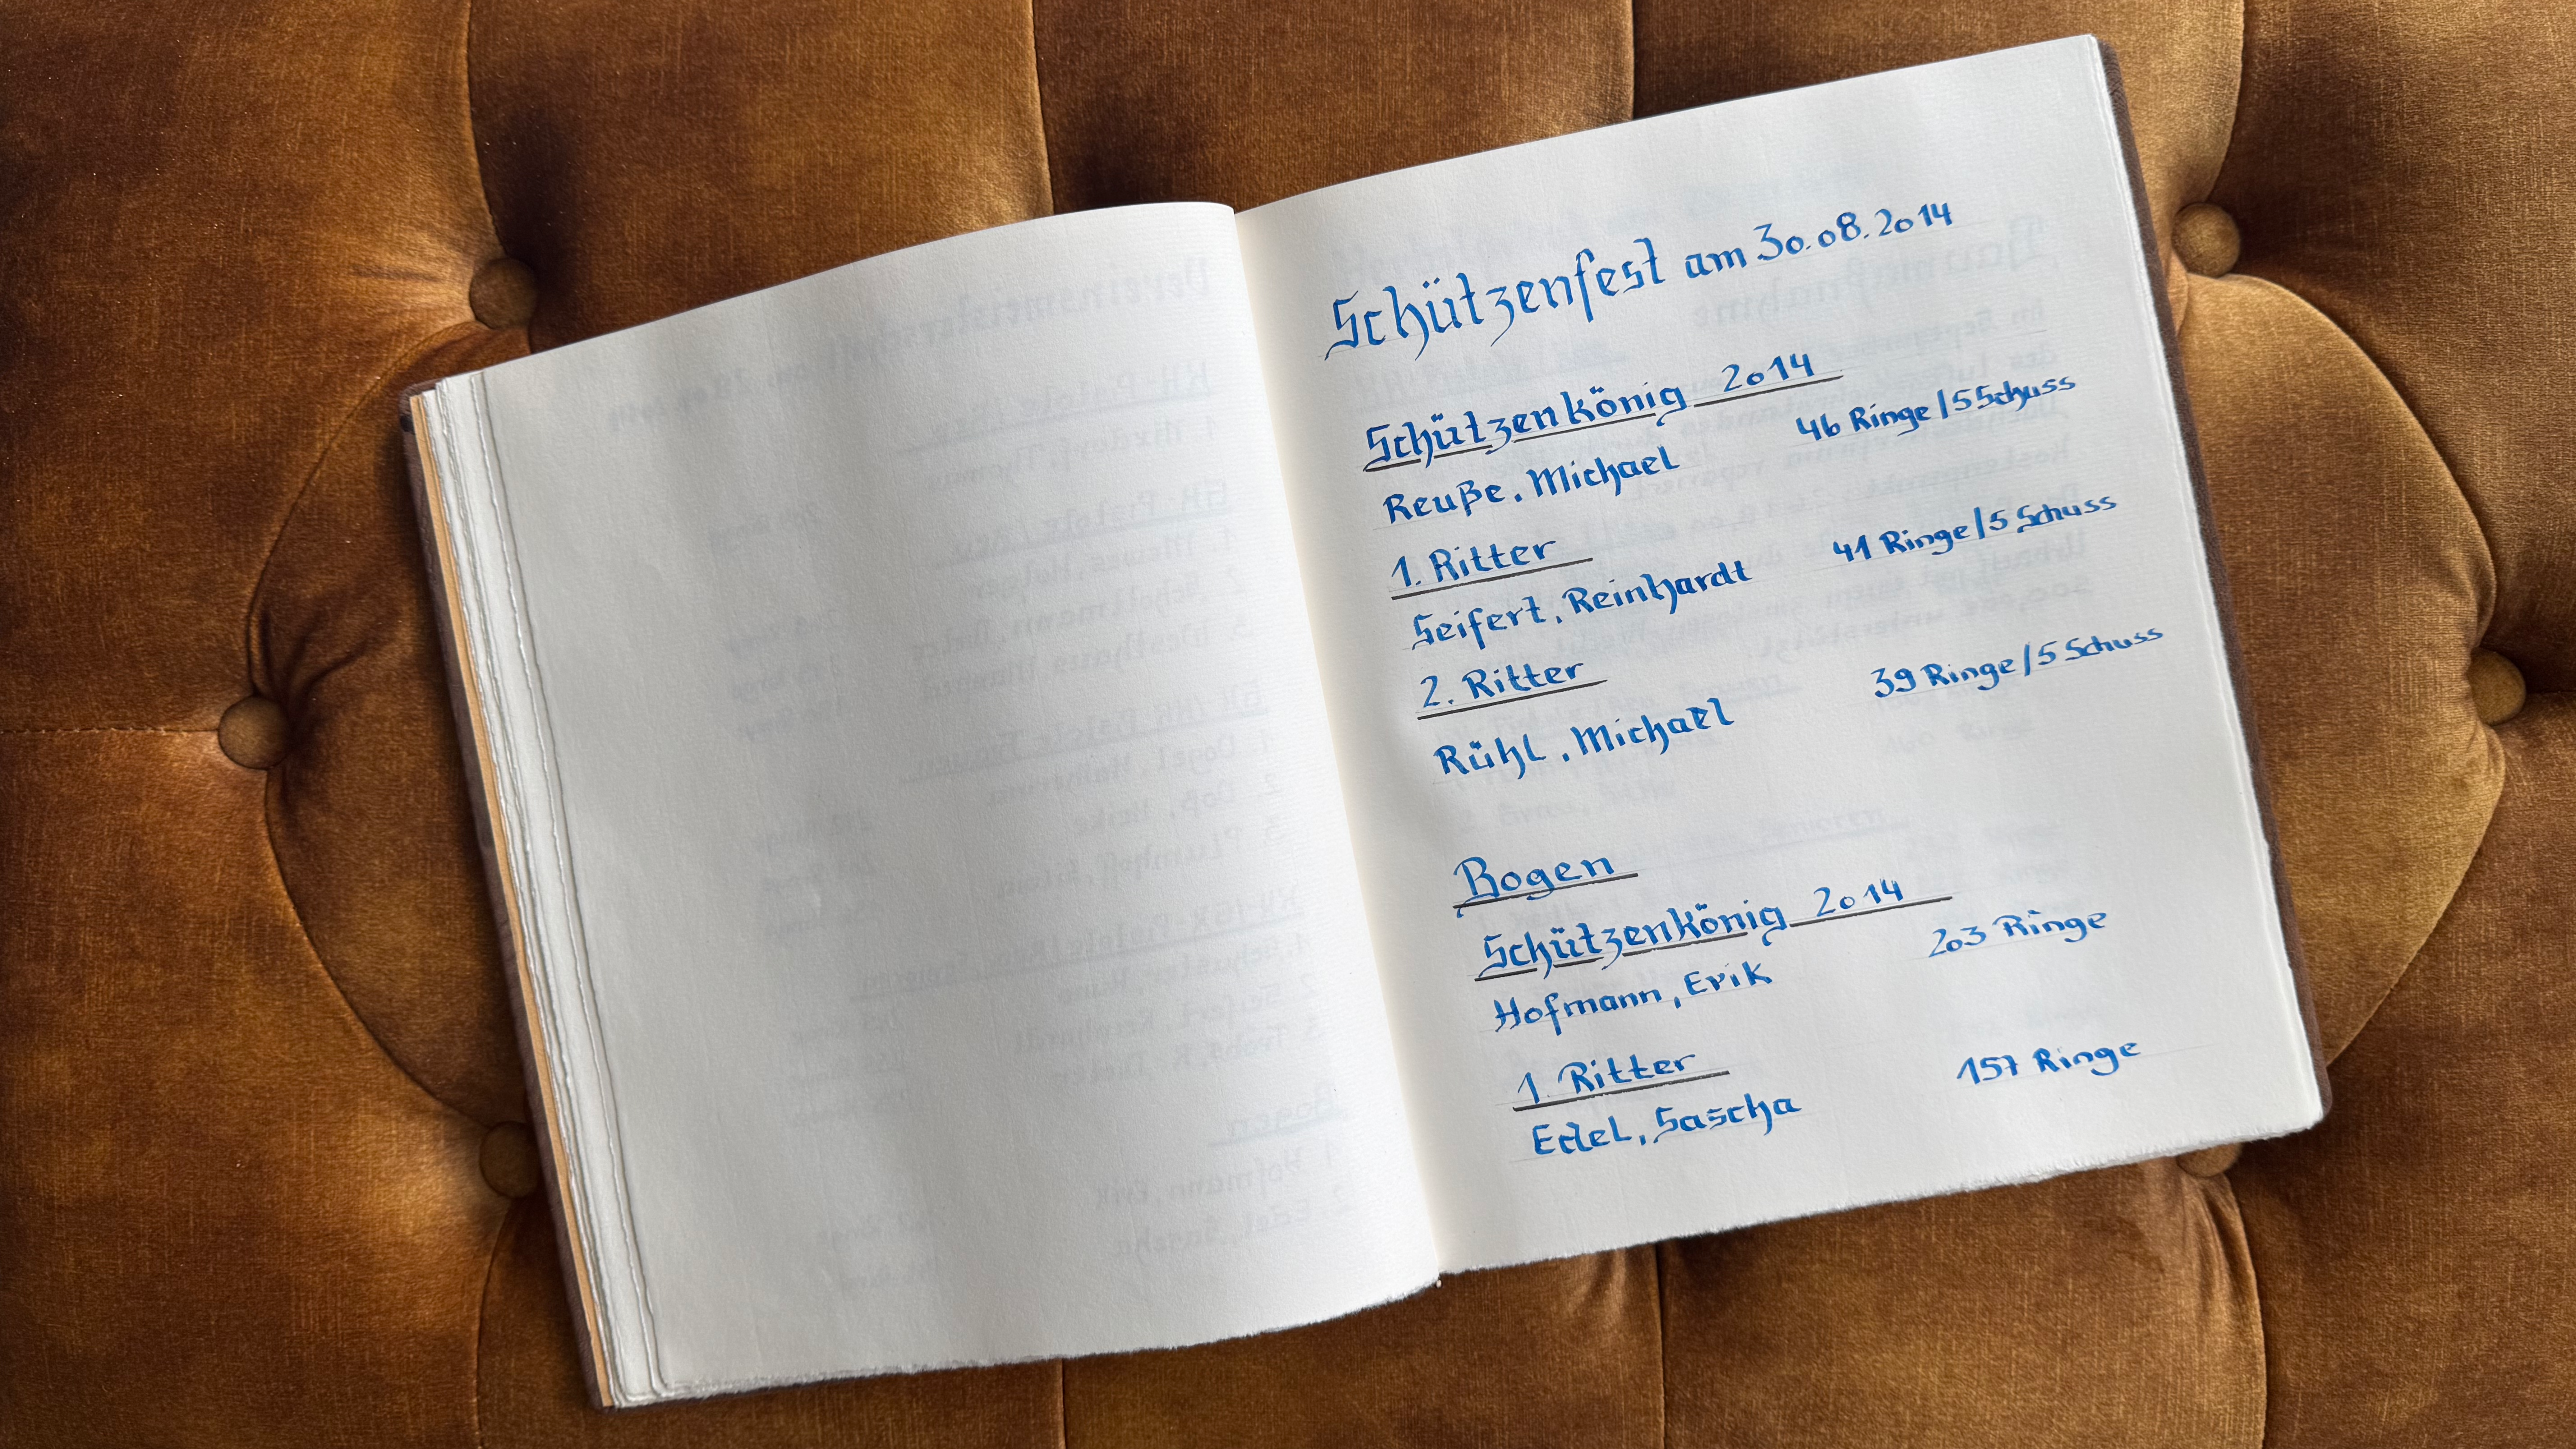 Schützenfest am 30.08.2014
Schützenkönig 2014
Reuße, Michael 46 Ringe/5 Schuss
1. Ritter
Seifert, Reinhardt 41 Ringe/5 Schuss
2. Ritter
Rühl, Michael 39 Ringe/5 Schuss
Bogen
Schützenkönig 2014
Hofmann, Erik 203 Ringe
1. Ritter
Edel, Sascha 157 Ringe